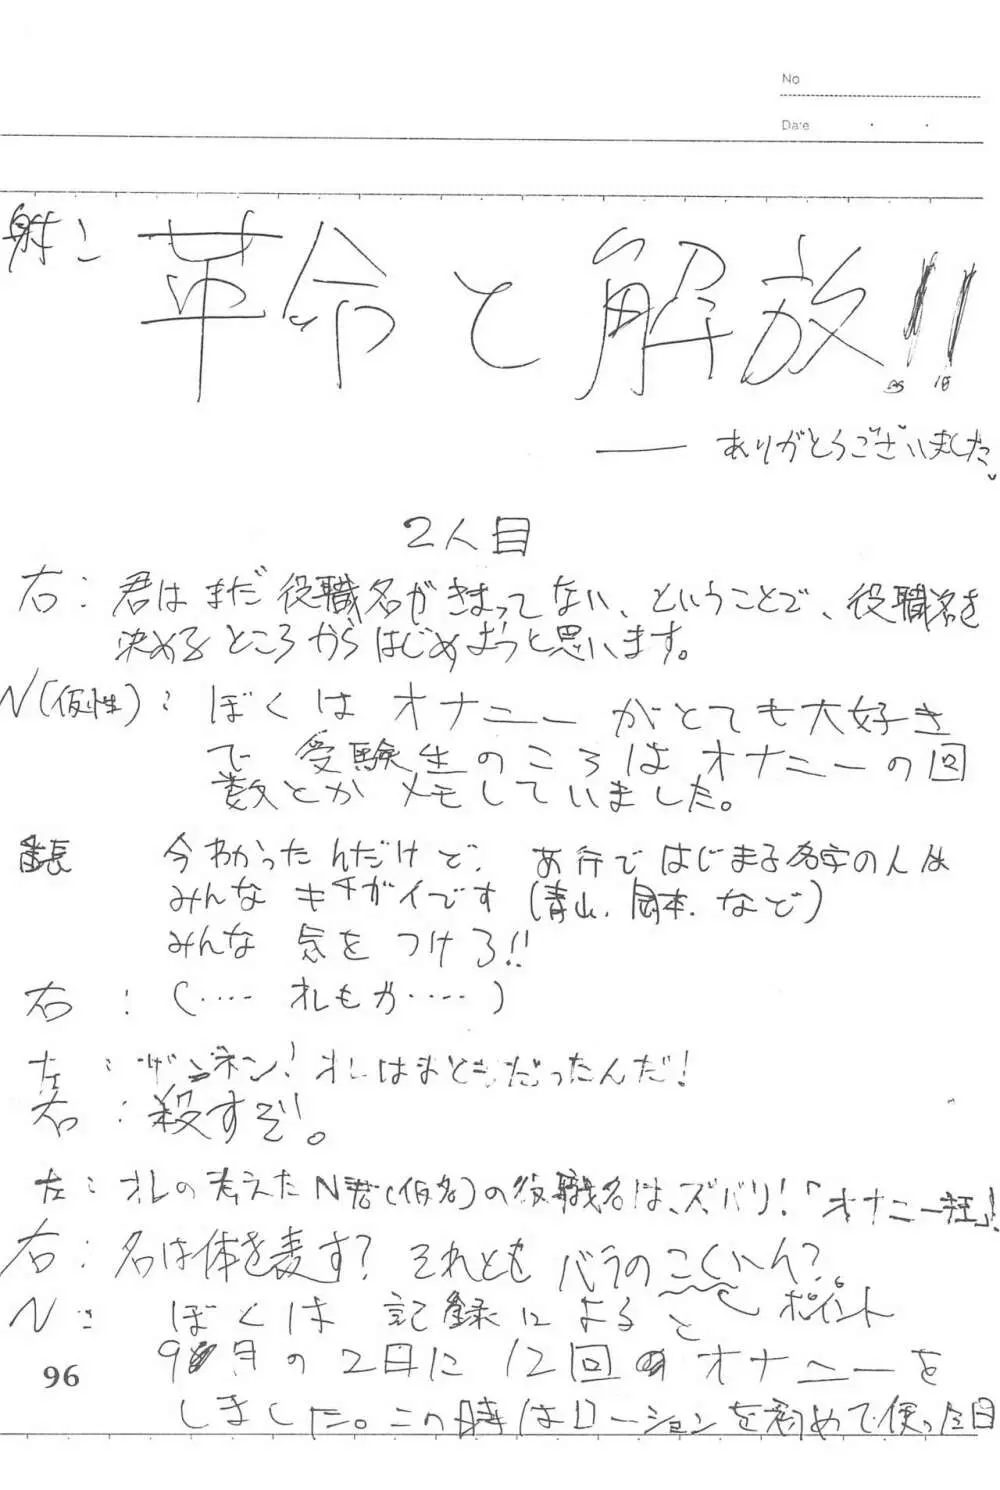 No
Date
射： 革命と解放!!
ありがとうございました。
2人目
右：君はまだ役職名がきまってない、ということで、役職名を
決めるところからはじめようと思います。
N(仮性)：ぼくはオナニーがとても大好き
で受験生のころはオナニーの回
数とかメモしていました。
番長 今わかったんだけど、あ行ではじまる名字の人は
みんなキチガイです(青山、岡本、など)
みんな気をつけろ!!
右：(‥‥オレもか‥‥)
左：ザンネン!オレはまともだったんだ!
右：殺すぞ!。
左：オレの考えたN君(仮名)の役職名は、ズバリ!「オナニー狂」!
右：名は体を表す?それともバラのこくいん?
ポイント
N： ぼくは記録によると
9月の2日に12回オナニーを
しました。この時はローションを初めて使った日
96